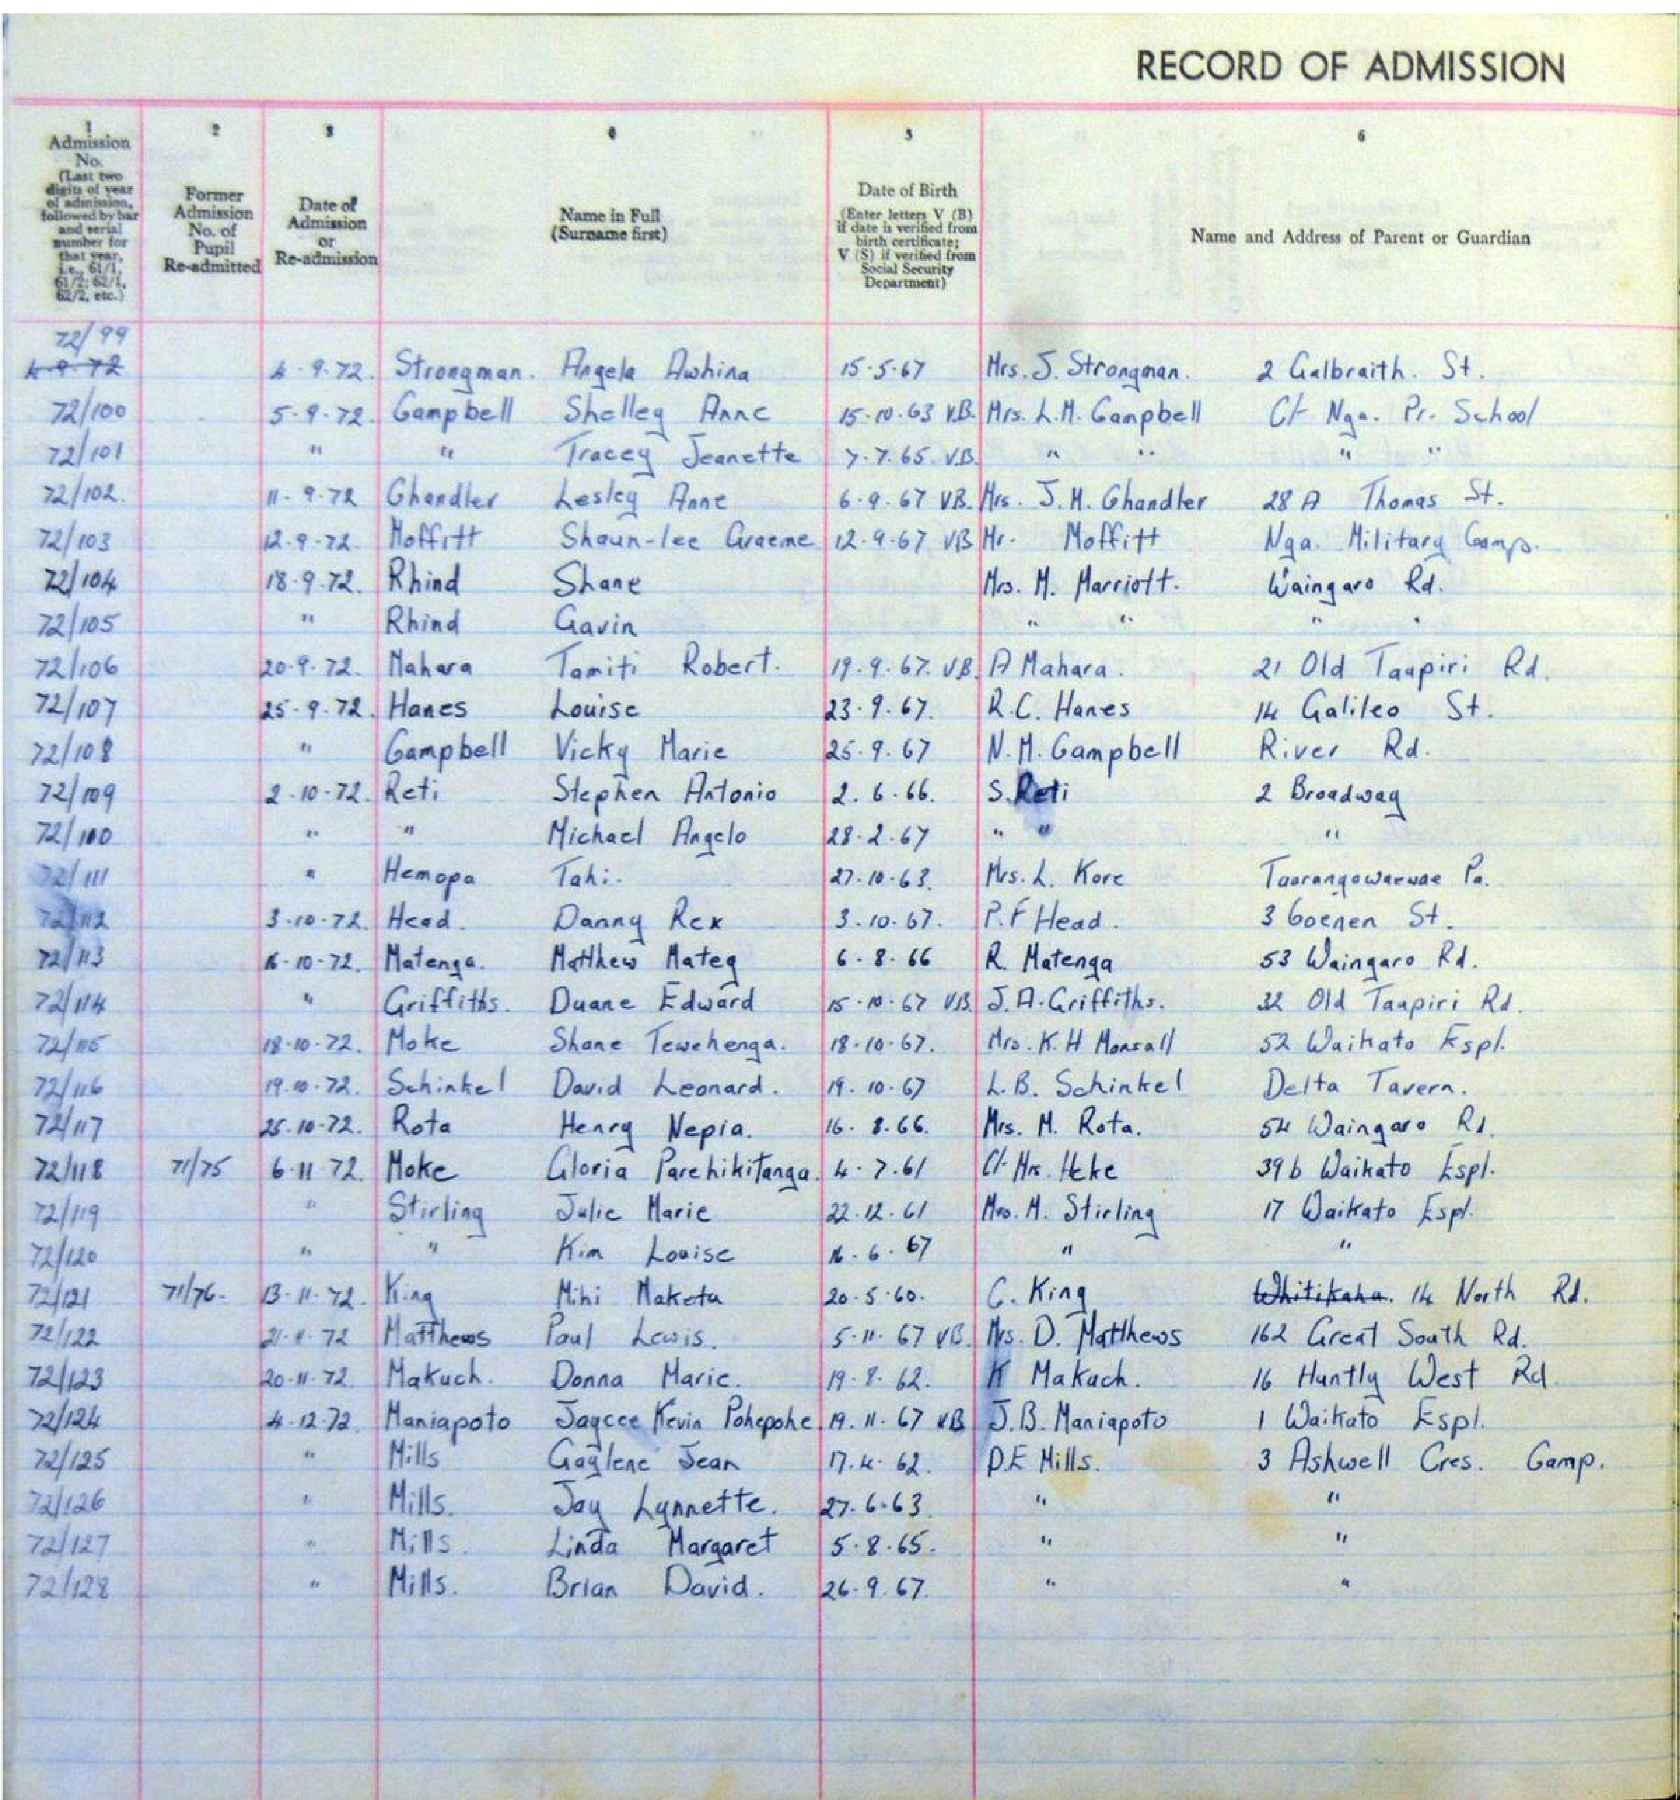 RECORD OF ADMISSION
1 2 3 4 5 6
Admission No. (Last two digits of year of admission, followed by bar and serial number for that year, i.e., 61/1, 61/2; 62/1, 62/2, etc.)
Former Admission No. of Pupil Re-admitted
Date of Admission or Re-admission
Name in Full (Surname first)
Date of Birth (Enter letters V (B) if date is verified from birth certificate; V (S) if verified from Social Security Department)
Name and Address of Parent or Guardian
72/99
4-9-72 4-9-72. Strongman. Angela Awhina 15-5-67 Mrs. J. Strongman. 2 Galbraith. St.
72/100 5-9-72. Campbell Shelley Anne 15-10-63 V.B. Mrs. L.M. Campbell C/- Nga. Pr. School
72/101 " " Tracey Jeanette 7-7-65. V.B. " " " "
72/102. 11-9-72 Chandler Lesley Anne 6-9-67 V.B. Mrs. J.M. Chandler 28 A Thomas St.
72/103 12-9-72. Moffitt Shaun-lee Graeme 12-9-67 VB Mr. Moffitt Nga. Military Camp.
72/104 18-9-72. Rhind Shane Mrs. M. Marriott. Waingaro Rd.
72/105 " Rhind Gavin " " " "
72/106 20-9-72. Mahara Tamiti Robert. 19.9.67. V.B. A Mahara. 21 Old Taupiri Rd.
72/107 25-9-72. Hanes Louise 23-9-67. R.C. Hanes 14 Galileo St.
72/108 " Campbell Vicky Marie 25-9-67 N.M. Campbell River Rd.
72/109 2-10-72. Reti Stephen Antonio 2.6.66. S. Reti 2 Broadway
72/100 " " Michael Angelo 28-2-67 " " "
72/111 " Hemopa Tahi. 27-10-63. Mrs. L. Kore Tuarangawaewae Pa.
72/112 3-10-72. Head. Danny Rex 3-10-67. P.F Head. 3 Coenen St.
72/113 16-10-72. Matenga. Matthew Matey 6-8-66 R. Matenga 53 Waingaro Rd.
72/114 " Griffiths. Duane Edward 15-10-67 V.B. J.A. Griffiths. 32 Old Taupiri Rd.
72/115 18-10-72. Moke Shane Tewehenga. 18-10-67. Mrs. K.H Monsall 52 Waikato Espl.
72/116 19-10-72. Schinkel David Leonard. 19-10-67 L.B. Schinkel Delta Tavern.
72/117 25-10-72. Rota Henry Nepia. 16-8-66. Mrs. M. Rota. 54 Waingaro Rd.
72/118 71/75 6-11-72. Moke Gloria Parehikitanga. 4-7-61 C/- Mrs. Heke 39b Waikato Espl.
72/119 " Stirling Julie Marie 22-12-61 Mrs. M. Stirling 17 Waikato Espl.
72/120 " " Kim Louise 16-6-67 " "
72/121 71/76- 13-11-72. King Mihi Maketu 20-5-60. C. King Whitikahu. 14 North Rd.
72/122 21-11-72 Matthews Paul Lewis. 5-11-67 VB. Mrs. D. Matthews 162 Great South Rd.
72/123 20-11-72. Makuch. Donna Marie. 19-8-62. K Makuch. 16 Huntly West Rd
72/124 4-12-72. Maniapoto Jaycee Kevin Pohepohe. 19-11-67 VB J.B. Maniapoto 1 Waikato Espl.
72/125 " Mills Gaylene Jean 17-4-62. D.E Mills. 3 Ashwell Cres. Camp.
72/126 " Mills. Jay Lynnette. 27-6-63. " "
72/127 " Mills. Linda Margaret 5-8-65. " "
72/128 " Mills. Brian David. 26-9-67. " "